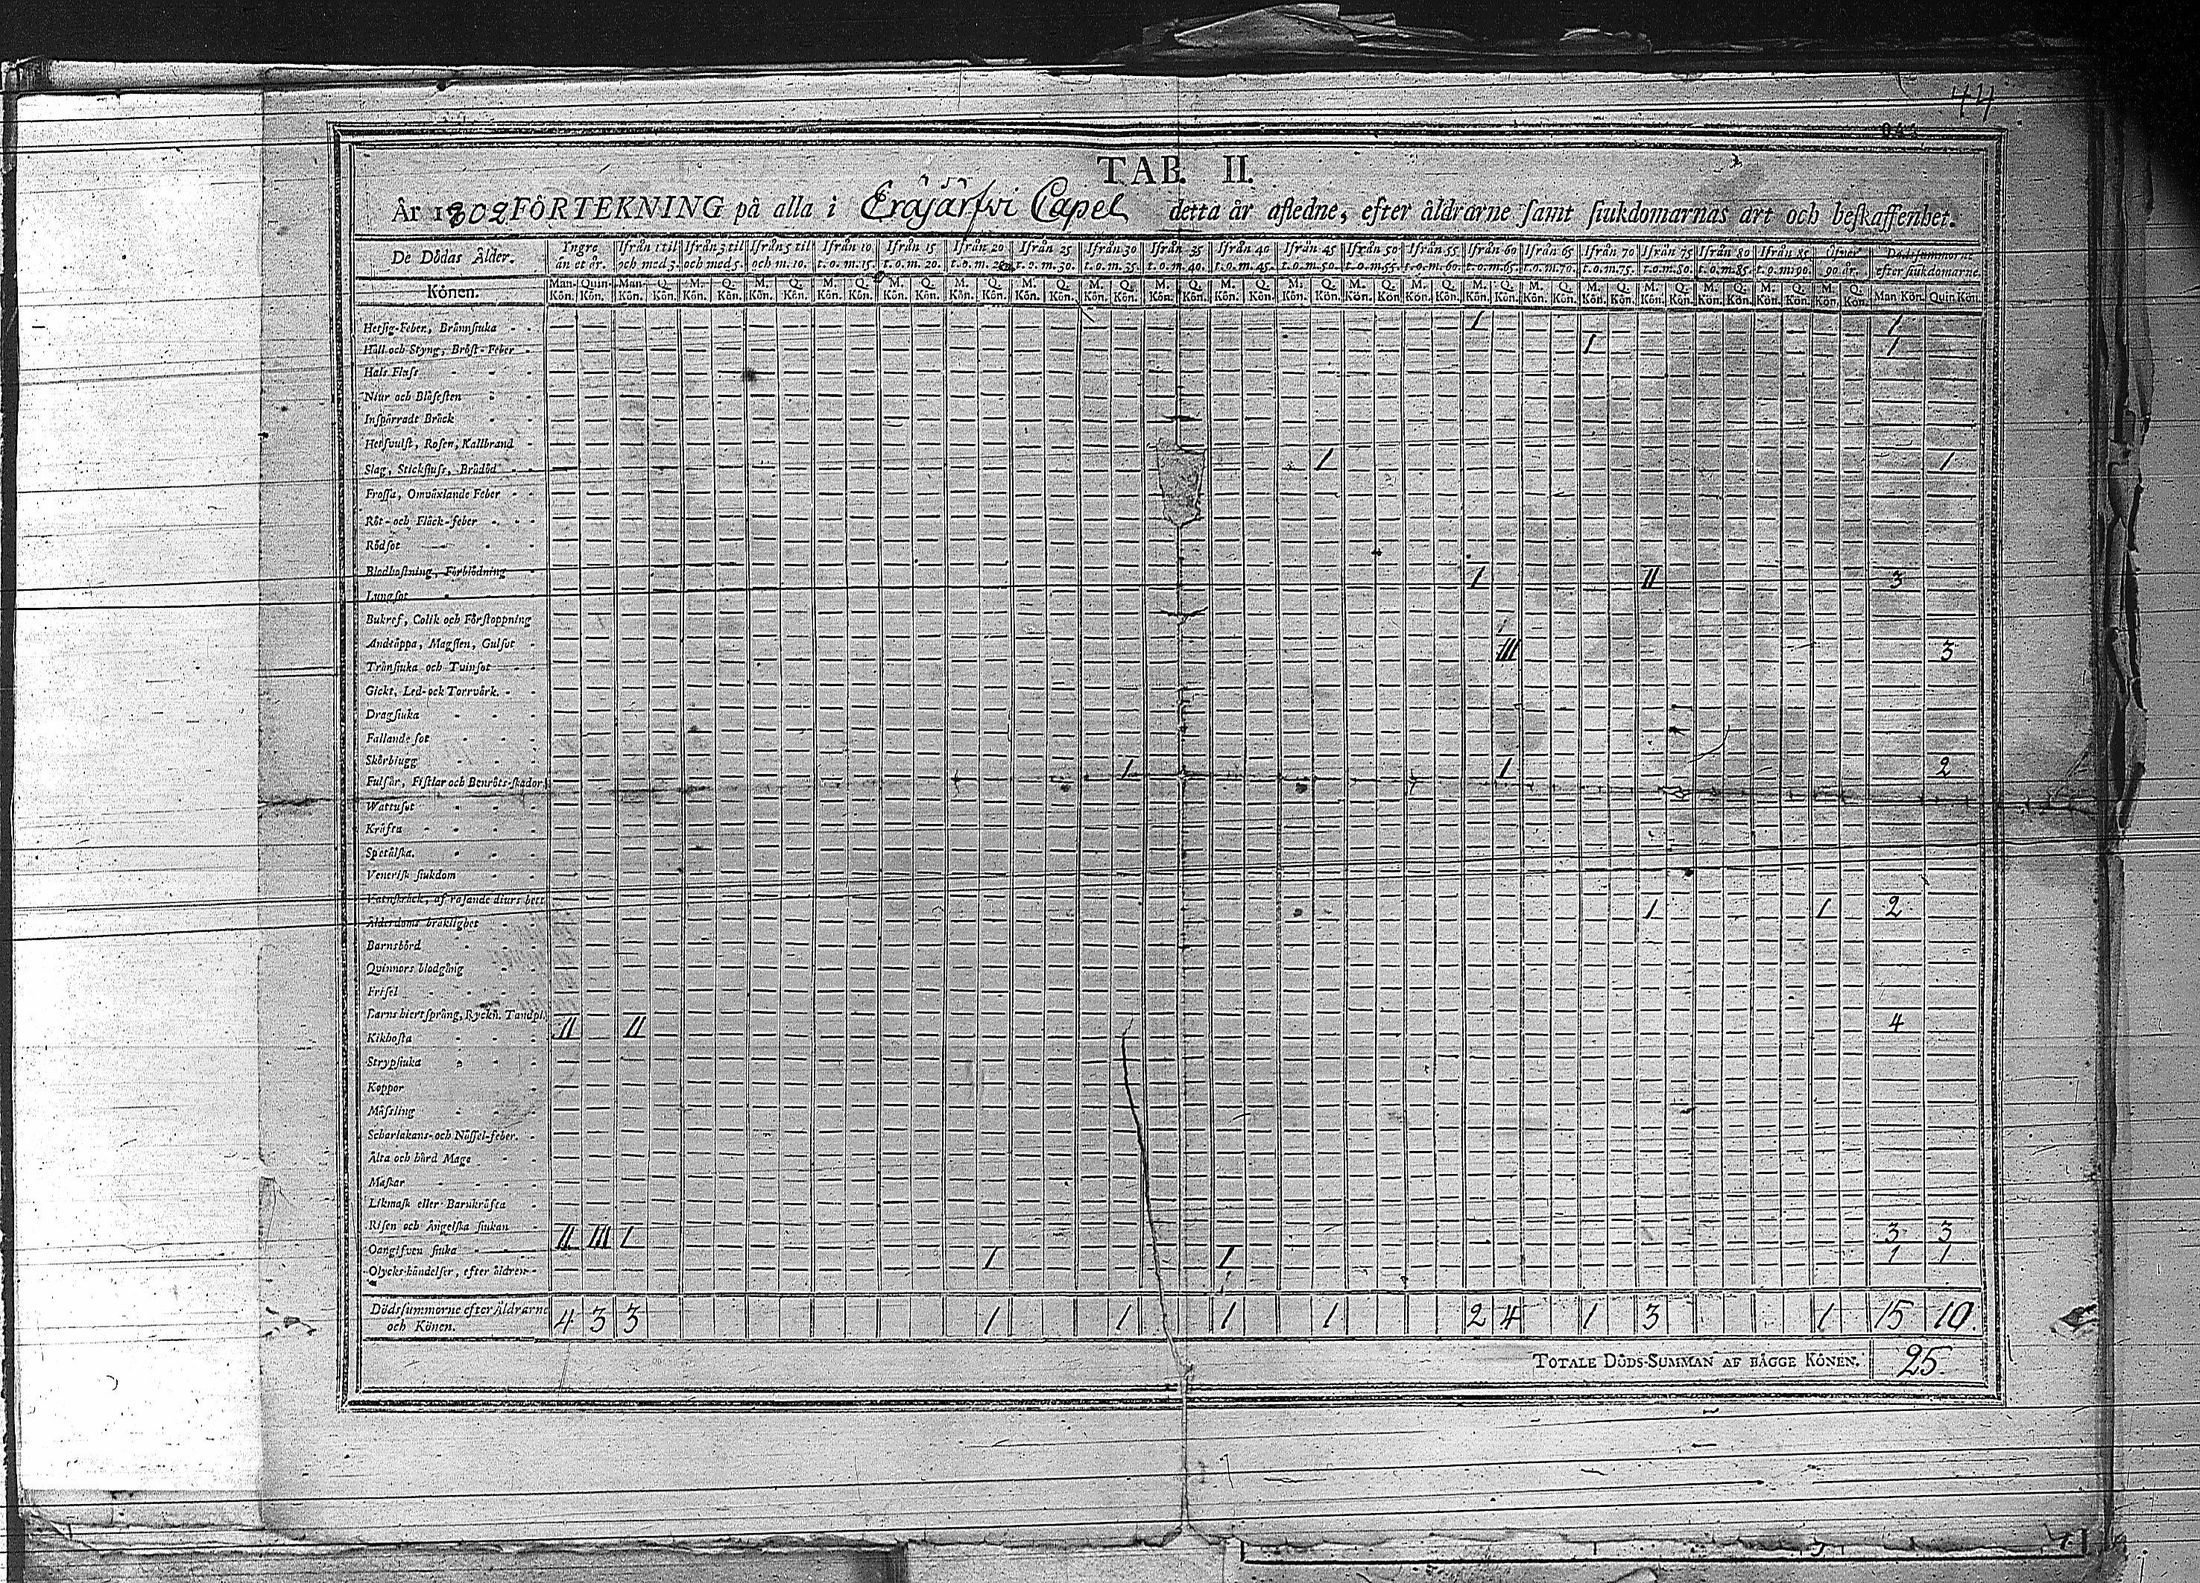 44
TAB. II.
År 1802 FÖRTEKNING på alla i Eräjärfvi Capel detta år afledne, efter åldrarne samt siukdomarnas art och beskaffenhet.
De Dödas Ålder. Yngre än et år. Ifrån 1 til och med 3. Ifrån 3 til och med 5. Ifrån 5 til och m. 10. Ifrån 10 t.o.m. 15. Ifrån 15 t.o.m. 20. Ifrån 20 t.o.m. 25. Ifrån 25 t.o.m. 30. Ifrån 30 t.o.m. 35. Ifrån 35 t.o.m. 40. Ifrån 40 t.o.m. 45. Ifrån 45 t.o.m. 50. Ifrån 50 t.o.m. 55. Ifrån 55 t.o.m. 60. Ifrån 60 t.o.m. 65. Ifrån 65 t.o.m. 70. Ifrån 70 t.o.m. 75. Ifrån 75 t.o.m. 80. Ifrån 80 t.o.m. 85. Ifrån 85 t.o.m. 90. Öfver 90 år. Dödssummorne efter siukdomarne.
Könen. Man-Kön. Quin-Kön. Man-Kön. Q. Kön. M. Kön. Q. Kön. M. Kön. Q. Kön. M. Kön. Q. Kön. M. Kön. Q. Kön. M. Kön. Q. Kön. M. Kön. Q. Kön. M. Kön. Q. Kön. M. Kön. Q. Kön. M. Kön. Q. Kön. M. Kön. Q. Kön. M. Kön. Q. Kön. M. Kön. Q. Kön. M. Kön. Q. Kön. M. Kön. Q. Kön. M. Kön. Q. Kön. M. Kön. Q. Kön. M. Kön. Q. Kön. M. Kön. Q. Kön. M. Kön. Q. Kön. Man Kön. Quin Kön.
Hetsig-Feber, Brännsiuka 1 1
Håll och Styng, Bröst-Feber 1 1
Hals Fluss
Niur och Blåsesten
Inspärradt Bråck
Hetsvulst, Rosen, Kallbrand
Slag, Stickfluss, Brådöd 1 1
Frossa, Omväxlande Feber
Röt- och Fläck-feber
Rödsot
Blodhostning, Förblödning
Lungsot 1 II 3
Bukref, Colik och Förstoppning
Andtäppa, Magsten, Gulsot III 3
Trånsiuka och Tvinsot
Gickt, Led- och Torrvärk.
Dragsiuka
Fallande sot
Skörbiugg
Fulsår, Fistlar och Benröts-skador 1 1 2
Wattusot
Kräfta
Spetälska.
Venerisk siukdom
Vatuskräck, af rasande diurs bett
Ålderdoms bräklighet 1 1 2
Barnsbörd
Quinnors blodgång
Frisel
Barns hiertsprång, Ryckn. Tandpl.
Kikhosta II II 4
Strypsiuka
Koppor
Mässling
Scharlakans- och Nässel-feber.
Älta och hård Mage
Maskar
Likmask eller Barnkräfta
Risen och Ängelska siukan
Oangifven siuka II III 1 3 3
Olycks-händelser, efter äldren 1 1 1 1
Dödssummorne efter Åldrarne och Könen. 4 3 3 1 1 1 1 2 4 1 3 1 15 10.
TOTALE DÖDS-SUMMAN AF BÄGGE KÖNEN. 25.